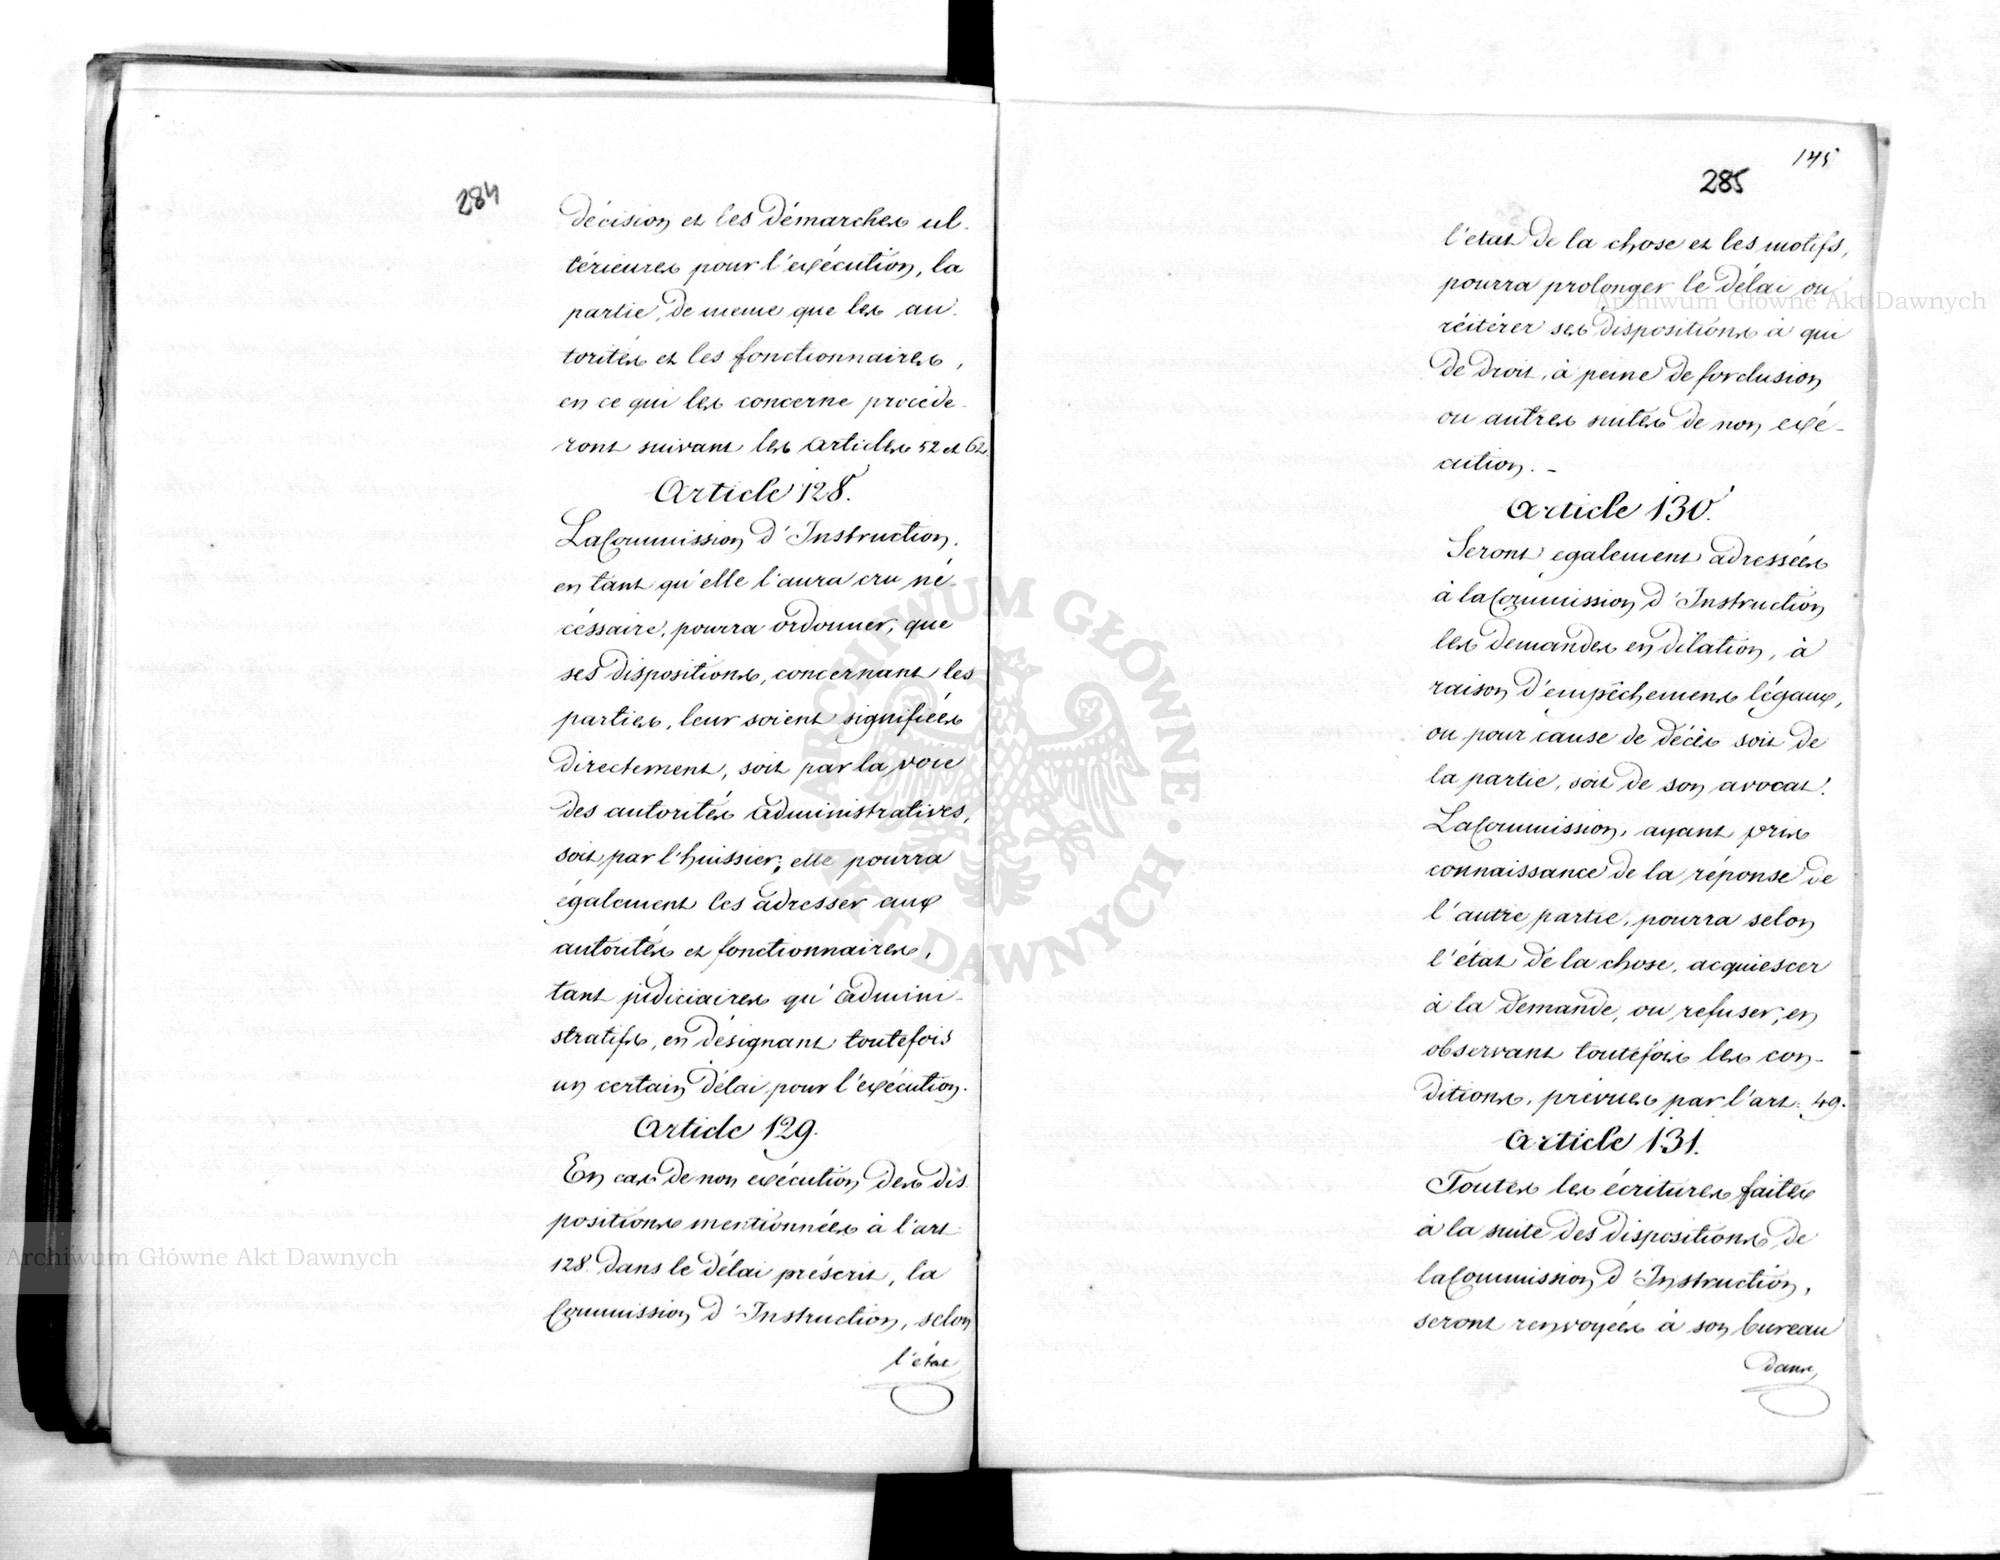 284
décision et les démarches ul-
térieures pour l'exécution, la
partie, de meme que les au-
torités et les fonctionnaires,
en ce qui les concerne procéde-
ront suivant les articles 52 et 62.
Article 128.
La Commission d'Instruction,
en tant qu'elle l'aura cru né-
céssaire, pourra ordonner, que
ses dispositions, concernant les
parties, leur soient signifiées
directement, soit par la voie
des autorités administratives,
soit par l'huissier; elle pourra
également les adresser aux
autorités et fonctionnaires,
tant judiciaires qu'admini-
stratifs, en désignant toutefois
un certain délai pour l'exécution.
Article 129.
En cas de non exécution des dis-
positions mentionnées à l'art.
128. dans le délai préscrit, la
Commission d'Instruction, selon
l'état
145
285
l'etat de la chose et les motifs,
pourra prolonger le délai ou
réitérer ses dispositions à qui
de droit, à peine de forclusion
ou autres suites de non exé-
cution. -
Article 130.
Seront egalement adressées
à la Commission d'Instruction
les demandes en dilation, à
raison d'empêchemens légaux,
ou pour cause de décès soit de
la partie, soit de son avocat.
La Commission, ayant pris
connaissance de la réponse de
l'autre partie, pourra selon
l'état de la chose, acquiescer
à la demande, ou refuser, en
observant toutefois les con-
ditions, prévues par l'art. 49.
Article 131.
Toutes les écritures faites
à la suite des dispositions de
la Commission d'Instruction,
seront renvoyées à son bureau
dans
Archiwum Główne Akt Dawnych
Archiwum Główne Akt Dawnych
ARCHIWUM GŁÓWNE · AKT DAWNYCH ·